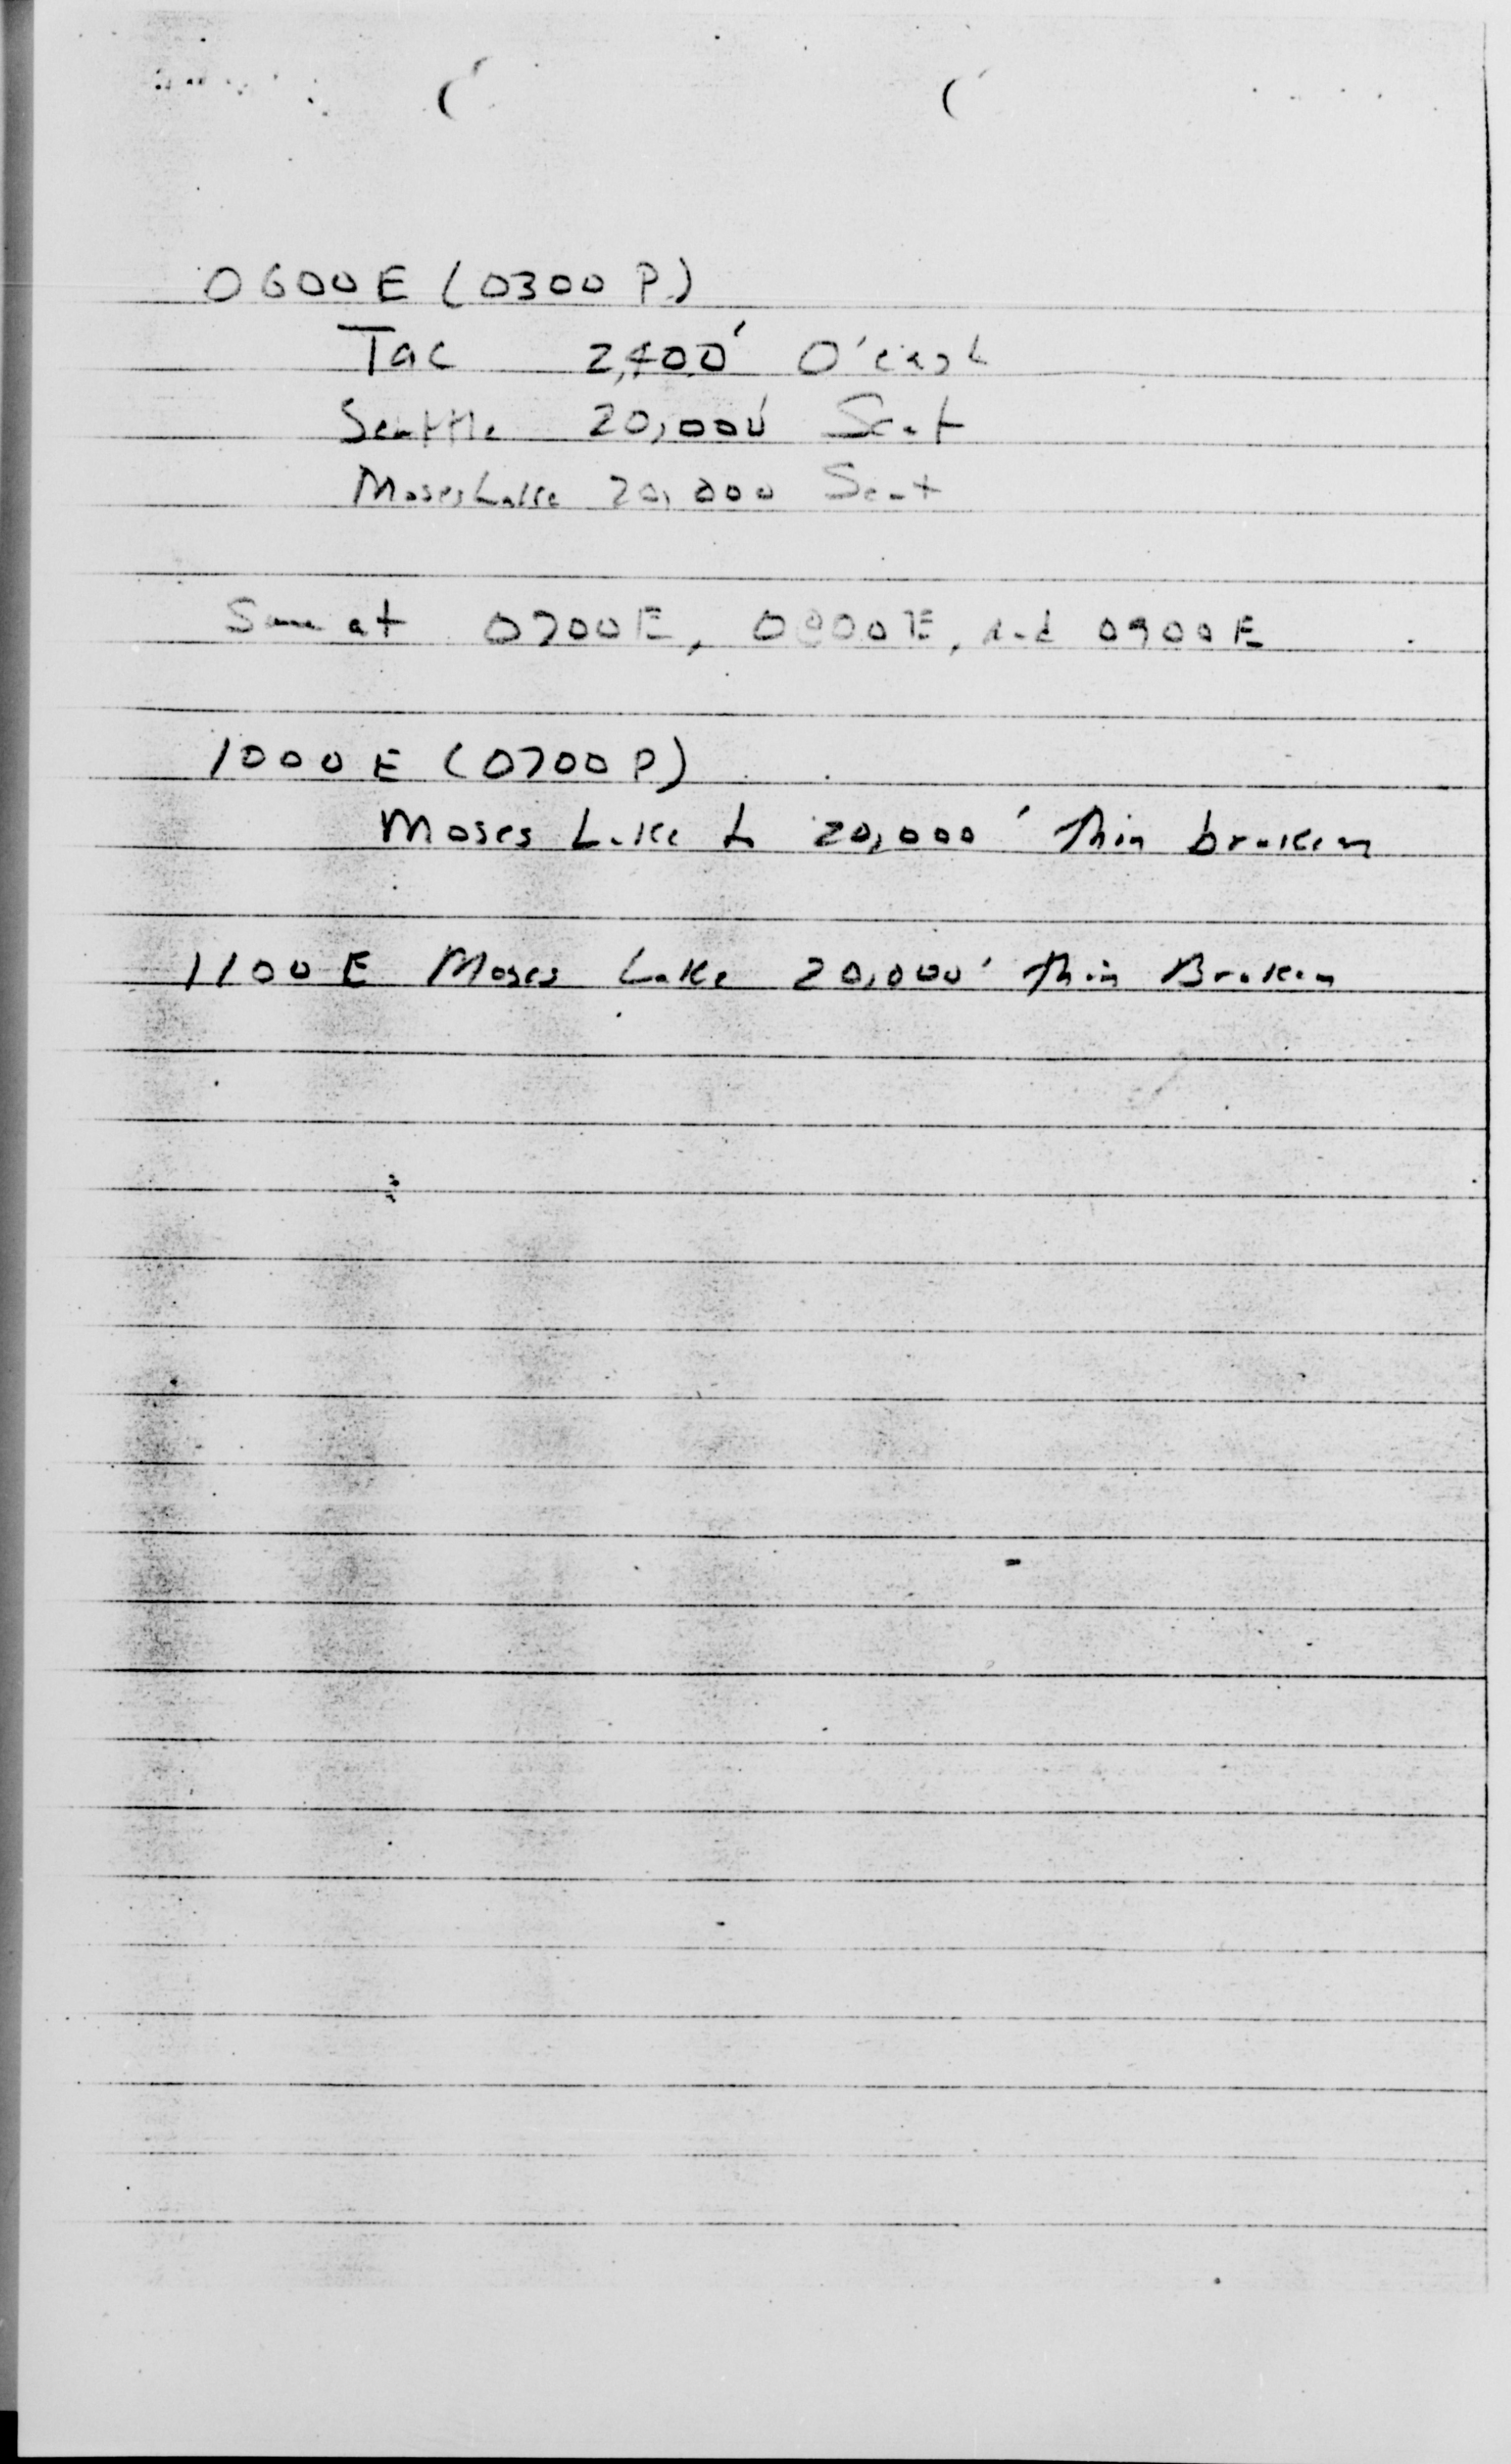 0600 E (0300 P)
Tac 2,400' O'cast
Seattle 20,000' Scat
Moses Lake 20,000 Scat
Same at 0700E, 0800E, and 0900E
1000 E (0700 P)
Moses Lake to 20,000' Thin broken
1100 E Moses Lake 20,000' Thin Broken